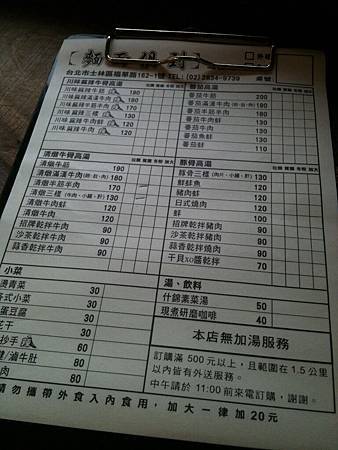 外帶
台北市士林區福華路162-1號 TEL: (02) 2834-9739 桌號
川味麻辣牛骨高湯
川味 麻辣牛筋 190
川味 麻辣滿漢牛肉 180
川味 麻辣半筋半肉 170
川味 麻辣三樣 130
川味 麻辣牛肉鮮 120
川味 麻辣牛肉 120
番茄高湯
番茄牛筋 200
番茄半筋半肉 180
番茄牛肉 130
番茄牛肉鮮 110
清燉牛骨高湯
清燉牛筋 190
清燉滿漢牛肉 180
清燉半筋半肉 170
清燉三樣 130
清燉牛肉鮮 120
清燉牛肉 120
招牌乾拌牛肉 90
沙茶乾拌牛肉 90
蒜香乾拌牛肉 90
豚骨高湯
豚骨三樣 130
鮮鮮魚 120
豬肉鮮 120
日式燒肉 120
鮮 100
招牌乾拌豬肉 90
沙茶乾拌豬肉 90
蒜香乾拌豬肉 90
干貝xo醬乾拌 70
小菜
燙青菜 30
各式小菜 30
蛋豆腐 30
花干 30
抄手 60
滷牛肚 80
肉 80
湯、飲料
什錦素菜湯 50
現煮研磨咖啡 40
本店無加湯服務
訂購滿 500 元以上，且範圍在 1.5 公里
以內皆有外送服務。
中午請於 11:00 前來電訂購，謝謝。
請勿攜帶外食入內食用，加大一律加20元